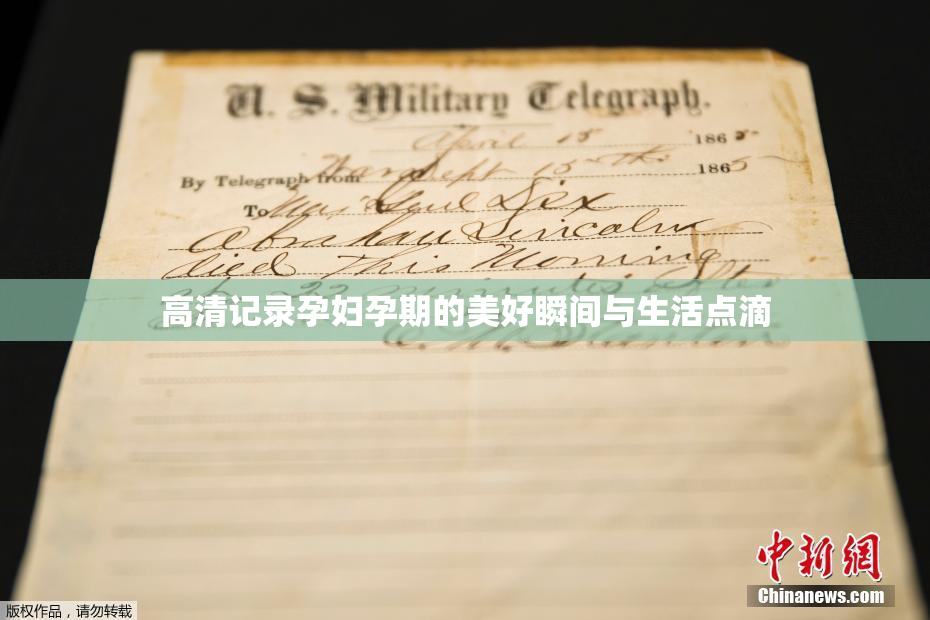 U. S. Military Telegraph.
April 15 1865
By Telegraph from War Dept 15th 1865
To Maj Genl Dix
Abraham Lincoln
died This Morning
at 22 minutes after
高清记录孕妇孕期的美好瞬间与生活点滴
E. M. Stanton
中新网
Chinanews.com
版权作品，请勿转载